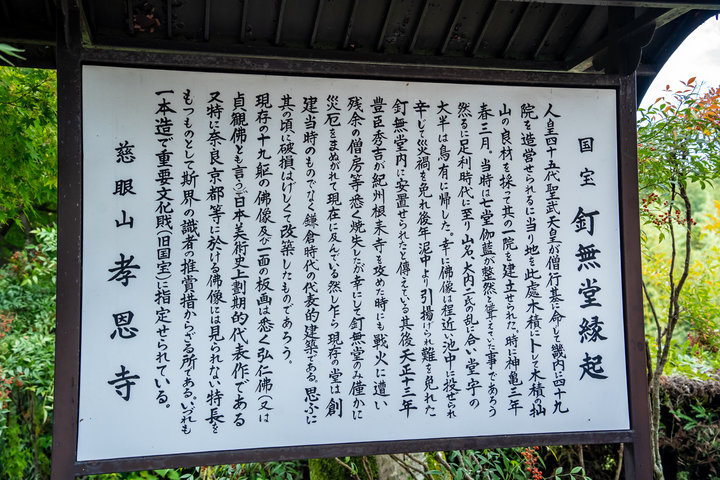 国宝 釘無堂縁起
人皇四十五代聖武天皇が僧行基に命じて畿内に四十九
院を造営せられるに当り地を此處木積に卜し木積の杣
山の良材を採って其の一院を建立せられた。時に神亀三年
春三月、当時は七堂伽藍が整然と聳えていた事であろう
然るに足利時代に至り山名、大内二氏の乱に合い堂宇の
大半は烏有に帰した。幸に佛像は程近い池中に投ぜられ
辛じて災禍を免れ後年泥中より引揚げられ難を免れた
釘無堂内に安置せられたと傳えている其後天正十三年
豊臣秀吉が紀州根来寺を攻めた時にも戦火に遭い
残余の僧房等悉く焼失したが幸にして釘無堂のみ僅かに
災厄をまぬがれて現在に及んでいる然し乍ら現存の堂は創
建当時のものでなく鎌倉時代の代表的建築である。思ふに
其の頃に破損はげしくて改築したものであろう。
現存の十九躯の佛像及び一面の板画は悉く弘仁佛（又は
貞観佛とも言う）日本美術史上劃期的代表作である
又特に奈良京都等に於ける佛像には見られない特長を
もつものとして斯界の識者の推賞措からざる所である。いづれも
一本造で重要文化財（旧国宝）に指定せられている。
慈眼山 孝恩寺